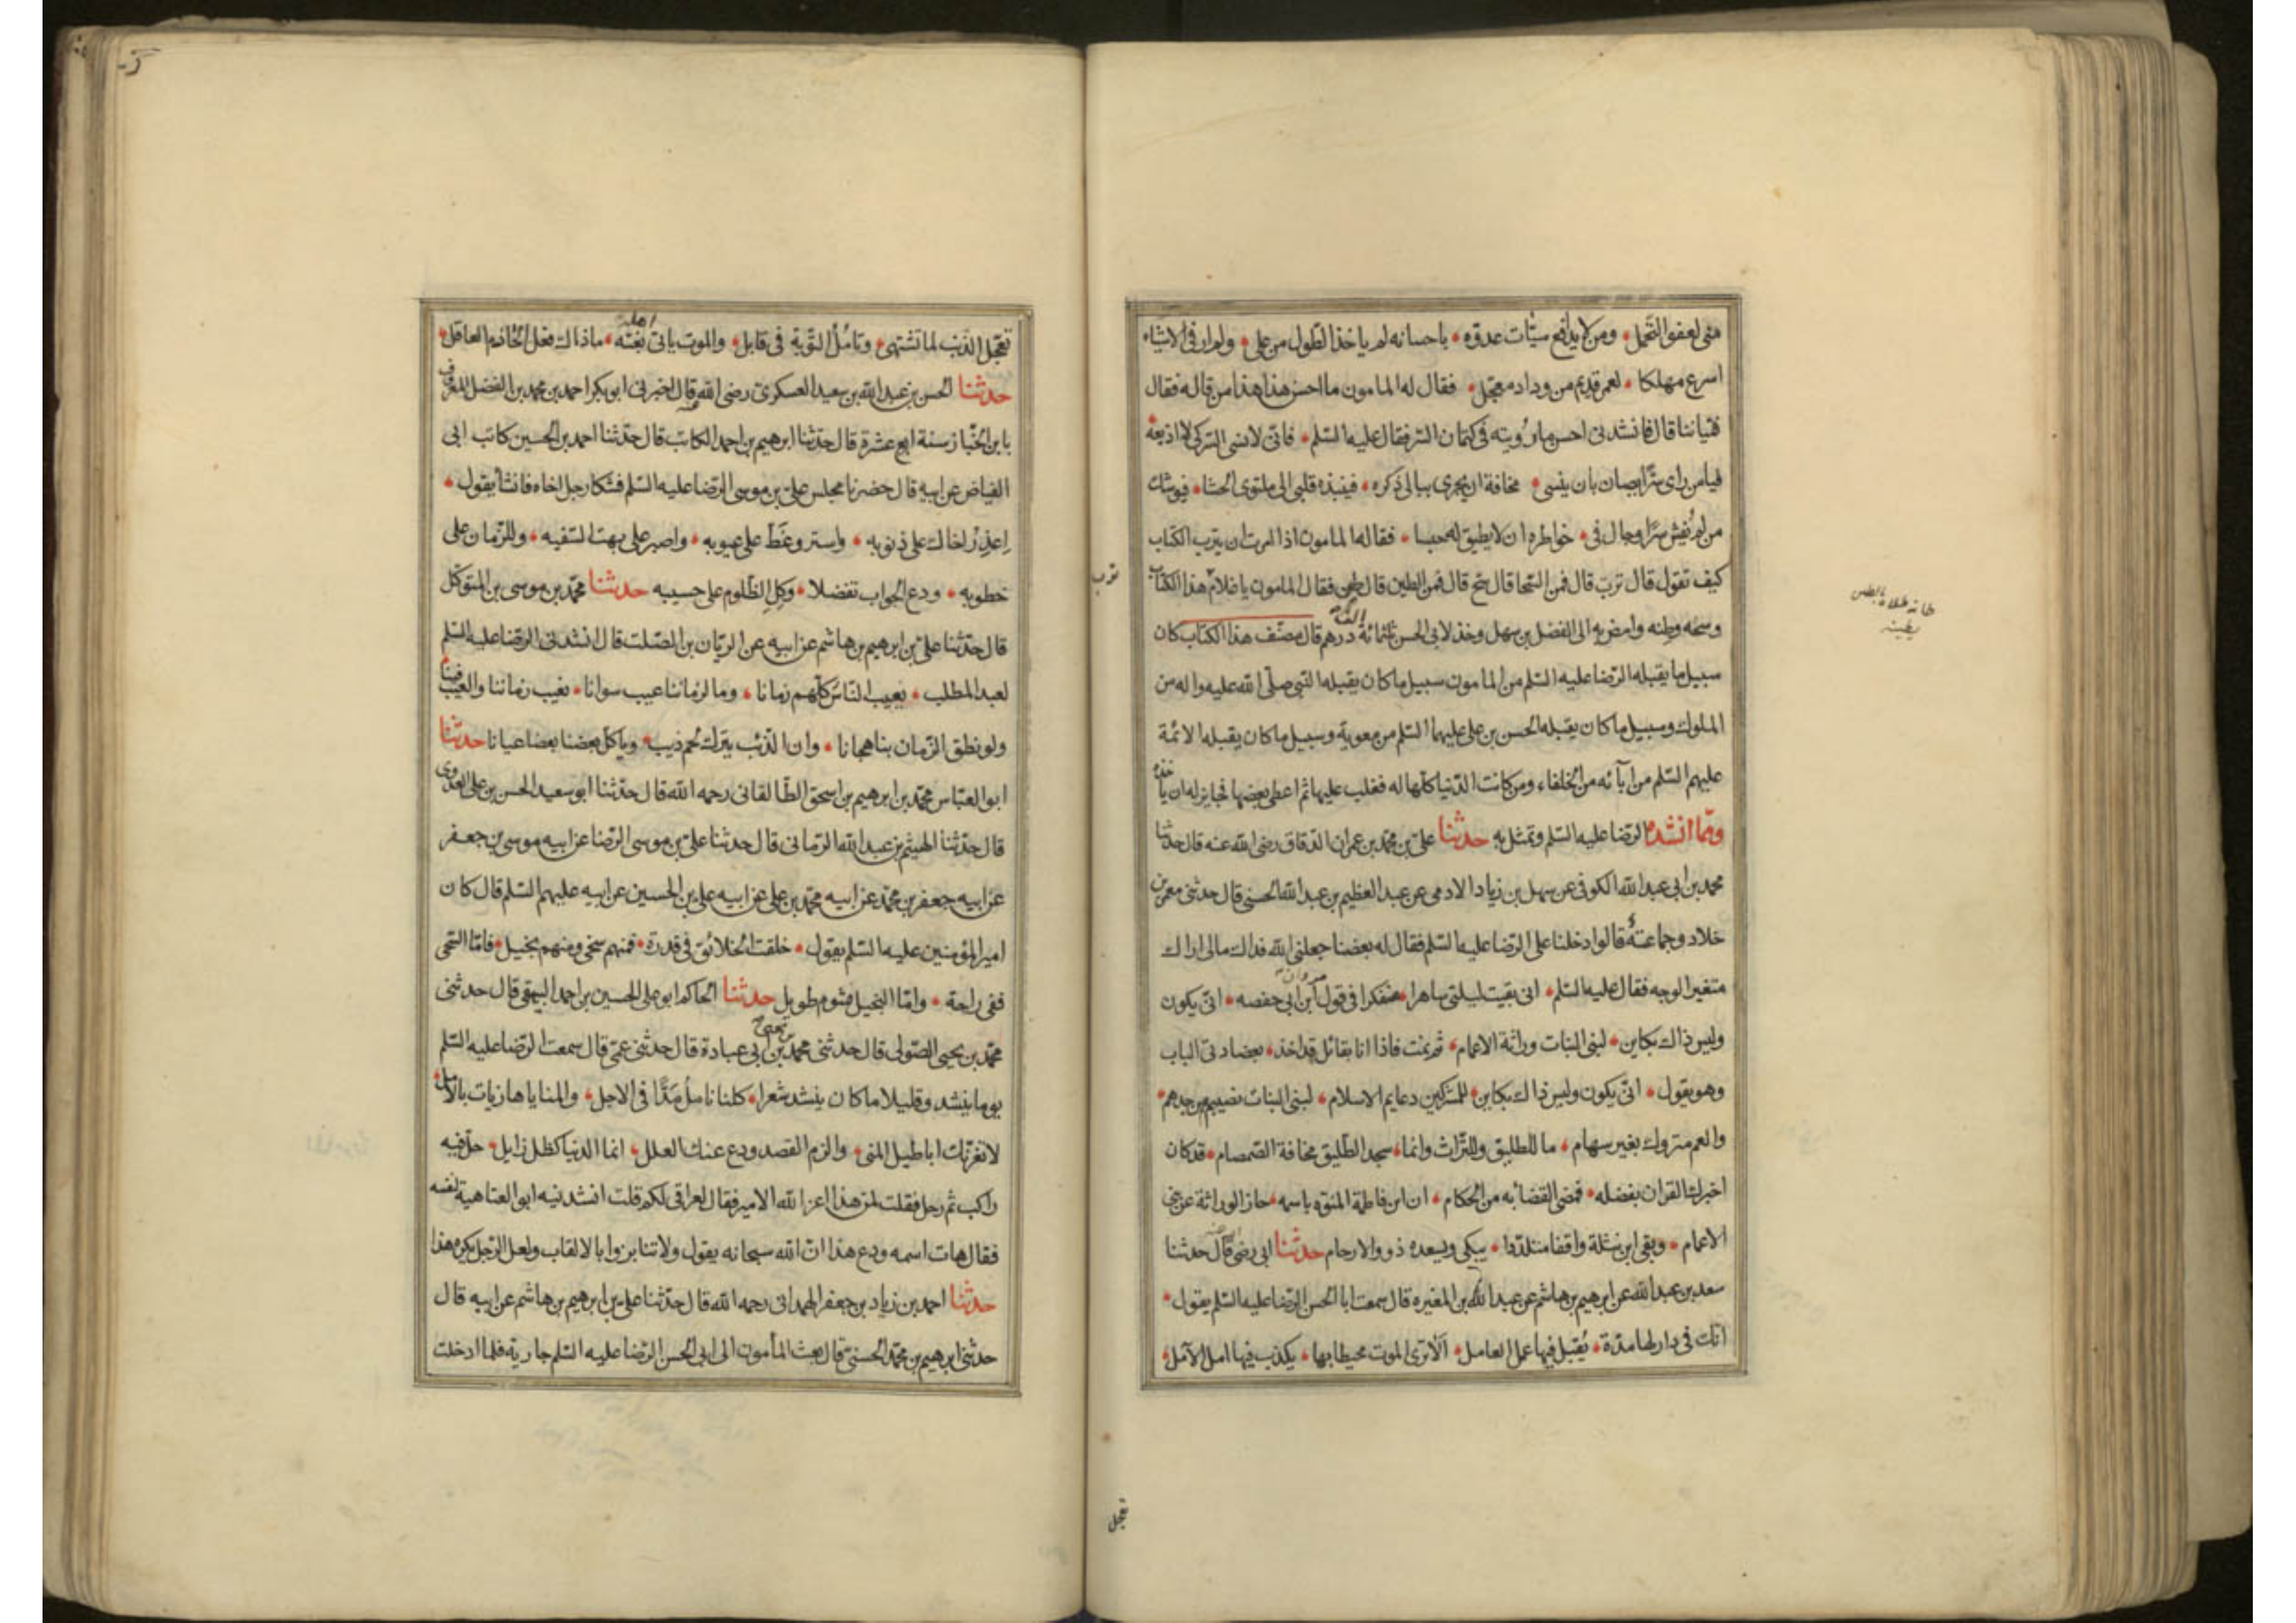 منى لعفو التحمل ومن لا يدافع سيّئات عدوّه باحسانه لم ياخذ الطول من على ولم ار فى الاشياء
اسرع مهلكا لغمر قديم من وداد معجل فقال له المامون ما احسن هذا هذا من قاله فقال
فتياننا قال فانشدنى احسن ما رويته فى كتمان السر فقال عليه السلم فانى لانسى السر كى لا اذيعه
فيا من راى سرّا يصان بان ينسى مخافة ان يجرى ببالى ذكره فينبذه قلبى الى ملتوى الحشا فيوشك
من لم يفش سرّا وجال فى خواطره ان لا يطيق له حبسا فقال له المامون اذا امرت ان يترب الكتاب
كيف تقول قال ترب قال فمن السحا قال سح قال فمن الطين قال طن فقال المامون يا غلام هذا الكتاب
وسحه وطنه وامض به الى الفضل بن سهل وخذ لابى الحسن ثلثمائة الف درهم قال مصنف هذا الكتاب كان
سبيل ما يقبله الرضا عليه السلم من المامون سبيل ما كان يقبله النبى صلى الله عليه واله من
الملوك وسبيل ما كان يقبله الحسن بن على عليهما السلم من معوية وسبيل ما كان يقبله الائمة
عليهم السلم من ابآئه من الخلفاء ومن كانت الدنيا كلها له فغلب عليها ثم اعطى بعضها فجايز له ان ياخذه
وممّا انشده الرضا عليه السلم وتمثل به حدثنا على بن محمد بن عمران الدقاق رضى الله عنه قال حدثنا
محمد بن ابى عبد الله الكوفى عن سهل بن زياد الادمى عن عبد العظيم بن عبد الله الحسنى قال حدثنى معمر بن
خلاد وجماعة قالوا دخلنا على الرضا عليه السلم فقال له بعضنا جعلنى الله فداك مالى اراك
متغير الوجه فقال عليه السلم انى بقيت ليلتى ساهرا متفكرا فى قول مروان بن ابى حفصه انى يكون
وليس ذاك بكاين لبنى البنات وراثة الاعمام ثم نمت فاذا انا بقائل قد اخذ بعضادتى الباب
وهو يقول انى يكون وليس ذاك بكاين للمشركين دعايم الاسلام لبنى البنات نصيبهم من جدهم
والعم متروك بغير سهام ما للطليق وللتراث وانما سجد الطليق مخافة الصمصام قد كان
اخبرك القران بفضله فمضى القضا به من الحكام ان ابن فاطمة المنوه باسمه حاز الوراثة عن بنى
الاعمام وبقى ابن نثلة واقفا متلددا يبكى ويسعده ذوو الارحام حدثنا ابى رضى قال حدثنا
سعد بن عبد الله عن ابرهيم بن هاشم عن عبد الله بن المغيره قال سمعت ابا الحسن الرضا عليه السلم يقول
انك فى دار لها مدّة يُقبل فيها عمل العامل ألا ترى الموت محيطا بها يكذب فيها امل الآمل
ترب
تعجل
تعجل الذنب لما تشتهى وتامُل التوبة فى قابل والموت ياتى اهله بغتة ما ذاك فعل الحازم العاقل
حدثنا الحسن بن عبد الله بن سعيد العسكرى رضى الله قال اخبرنى ابو بكر احمد بن محمد بن الفضل المعروف
بابن الخباز سنة اربع عشرة قال حدثنا ابرهيم بن احمد الكاتب قال حدثنا احمد بن الحسين كاتب ابى
الفياض عن ابيه قال حضرنا مجلس على بن موسى الرضا عليه السلم فشكا رجل اخاه فانشأ يقول
اعذر اخاك على ذنوبه واستر وغط على عيوبه واصبر على بهت السفيه وللزمان على
خطوبه ودع الجواب تفضلا وكل الظلوم على حسيبه حدثنا محمد بن موسى بن المتوكل
قال حدثنا على بن ابرهيم بن هاشم عن ابيه عن الريان بن الصلت قال انشدنى الرضا عليه السلم
لعبد المطلب يعيب الناس كلهم زمانا وما لزماننا عيب سوانا نعيب زماننا والعيب فينا
ولو نطق الزمان بنا هجانا وان الذئب يترك لحم ذيب وياكل بعضنا بعضا عيانا حدثنا
ابو العباس محمد بن ابرهيم بن اسحق الطالقانى رحمه الله قال حدثنا ابو سعيد الحسن بن على العدوى
قال حدثنا الهيثم بن عبد الله الرمانى قال حدثنا على بن موسى الرضا عن ابيه موسى بن جعفر
عن ابيه جعفر بن محمد عن ابيه محمد بن على عن ابيه على بن الحسين عن ابيه عليهم السلم قال كان
امير المؤمنين عليه السلم يقول خلقت الخلائق فى قدرة فمنهم سخى ومنهم بخيل فامّا السخى
ففى راحة وامّا البخيل فشوم طويل حدثنا الحاكم ابو على الحسين بن احمد البيهقى قال حدثنى
محمد بن يحيى الصولى قال حدثنى محمد بن يحيى بن ابى عبادة قال حدثنى عمى قال سمعت الرضا عليه السلم
يوما ينشد وقليلا ما كان ينشد شعرا كلنا نامل مدّا فى الاجل والمنايا هازيات بالامل
لا تغرنك اباطيل المنى والزم القصد ودع عنك العلل انما الدنيا كظل زايل حل فيه
راكب ثم رحل فقلت لمن هذا اعز الله الامير فقال لعراقى لكم قلت انشدنيه ابو العتاهية لنفسه
فقال هات اسمه ودع هذا ان الله سبحانه يقول ولا تنابزوا بالالقاب ولعل الرجل يكره هذا
حدثنا احمد بن زياد بن جعفر الهمدانى رحمه الله قال حدثنا على بن ابرهيم بن هاشم عن ابيه قال
حدثنى ابرهيم بن محمد الحسنى قال بعث المأمون الى ابى الحسن الرضا عليه السلم جارية فلما ادخلت